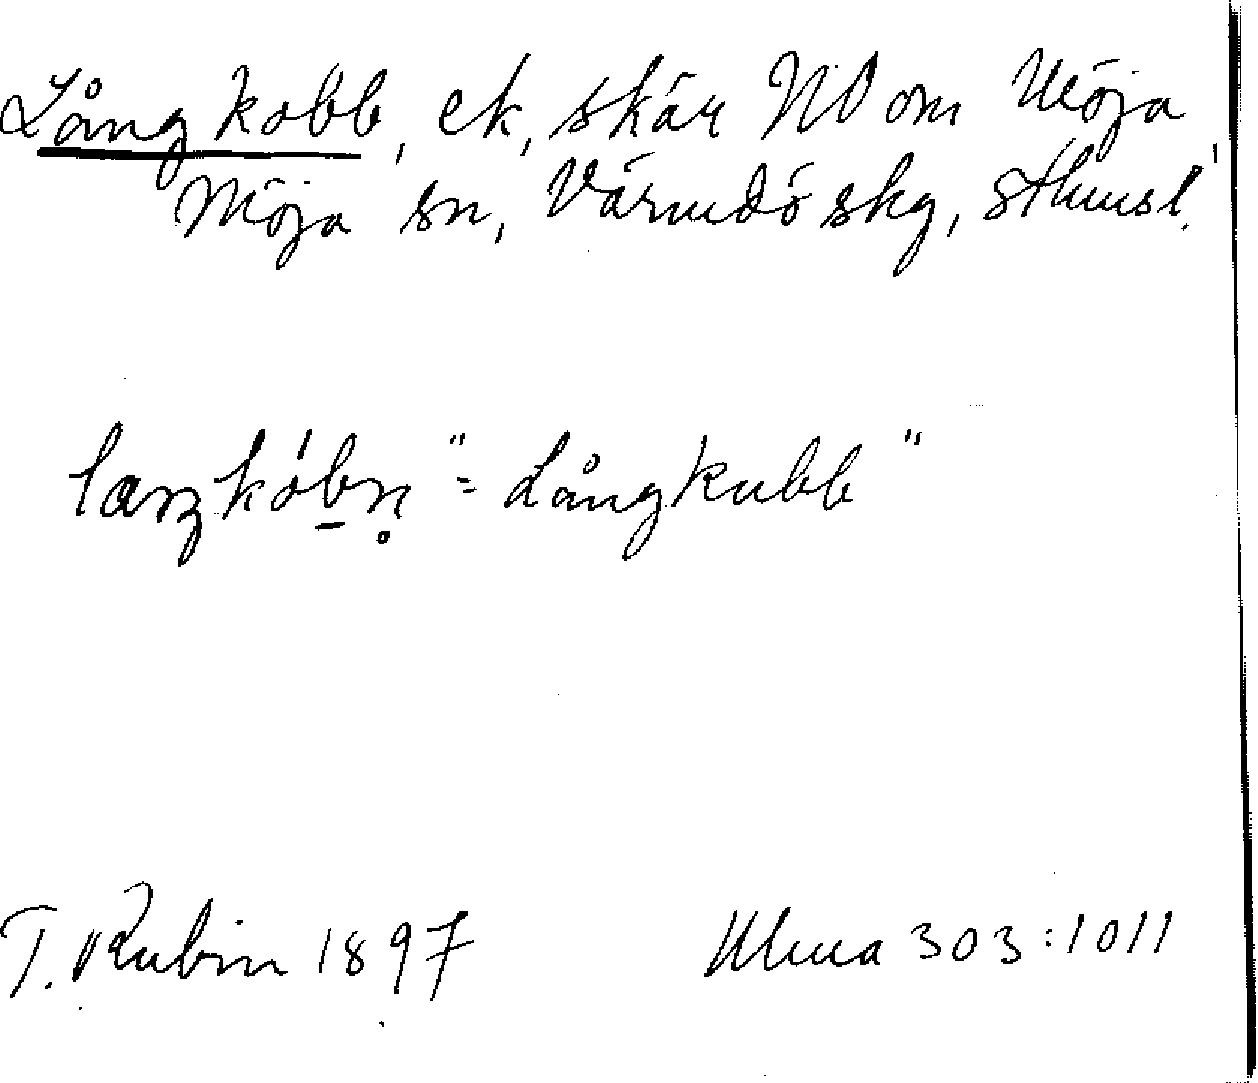 Långkobb, ek, skär NO om Möja,
Möja sn, Värmdö skg, sthmsl.
"= Långkubb"
T. Rubin 1897 Ulma 303:1011